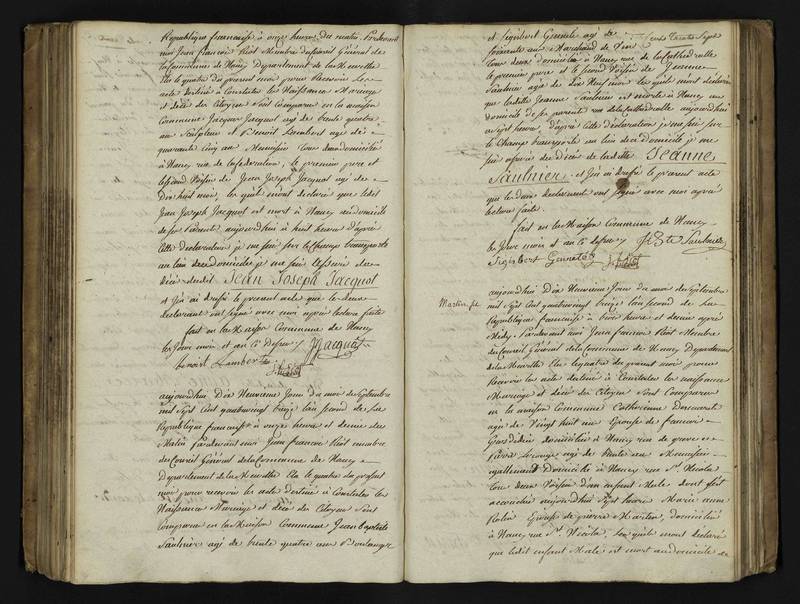 République française à onze heures du matin. Pardevant
moi Jean François Membre du Conseil Général de
la Commune de Nancy Département de la Meurthe
élu le quatre du présent mois pour Recevoir les
acte destiné à Constater les Naissance Mariage
et décès des Citoyens Sont Comparu en la maison
Commune Jacque Jacquot agé de trente quatre
an Sculpteur et Benoit Lambert agé de
quarante Cinq an Menuisier tous deux domicilié
à Nancy rue de la fédération, le premier pere et
le second Voisin de Jean Joseph Jacquot agé de
Dix huit mois, les quels m'ont déclaré que ledit
Jean Joseph Jacquot est mort à Nancy au domicile
de ses Parents aujourd'hui à huit heures d'après
Cette déclaration je me suis sur le Champ transporté
au lieu de ce domicile je me suis assuré du
décès dudit Jean Joseph Jacquot
et j'ai dressé le présent acte que les deux
déclarant ont signé avec moi après lecture faite
fait en la Maison Commune de Nancy
les Jour mois et an ci dessus Jacquot
benoit Lambert
aujourd'hui Dix Neuvieme Jour du mois de Septembre
mil Sept Cent quatrevingt treize l'an second de la
République française à onze heures et demie du
Matin Pardevant moi Jean francois membre
du Conseil Général de la Commune de Nancy
Département de la Meurthe élu le quatre du présent
mois pour recevoir les acte destiné à Constater les
Naissance Mariage et décès des Citoyens Sont
Comparu en la Maison Commune Jean Baptiste
Saulnier agé de trente quatre ans Boulanger
et Sigisbert Genetet agé de
soixante an Marchand de Vin
tous deux domiciliés à Nancy rue de la Cathédralle
le premier pere et le second Voisin de Jeanne
Saulnier agé de Dix Neuf mois les quels m'ont déclaré
que ladite Jeanne Saulnier est morte à Nancy au
domicile de ses parents rue de la Cathédralle aujourd'hui
à sept heures, d'après Cette déclaration je me suis sur
le Champ transporté au lieu de ce domicile je me
suis assuré du décès de ladite Jeanne
Saulnier et j'ai dressé le présent acte
que les deux déclarant ont signé avec moi après
lecture faite.
fait en la Maison Commune de Nancy
les Jour mois et an ci dessus J. Bte Saulnier
Sigisbert Genetet
Martin
aujourd'hui Dix Neuvieme Jour du mois de Septembre
mil Sept Cent quatrevingt treize l'an second de la
République française à trois heures et demie après
Midy. Pardevant moi Jean francois Membre
du Conseil Général de la Commune de Nancy Département
de la Meurthe élu le quatre du présent mois pour
Recevoir les acte destiné à Constater les naissance
Mariage et décès des Citoyens Sont Comparu
en la maison Commune Catherine
agé de Vingt huit ans Epouse de francois
domicilié à Nancy rue de grève et
Pierre agé de trente ans Menuisier
également Domicilié à Nancy rue St. Nicolas
tous deux Voisin d'un enfant Male dont est
accouché aujourd'hui Marie anne
Robin Epouse de pierre Martin, domicilié
à Nancy rue St. Nicolas, les quels m'ont déclaré
que ledit enfant Male est mort au domicile de